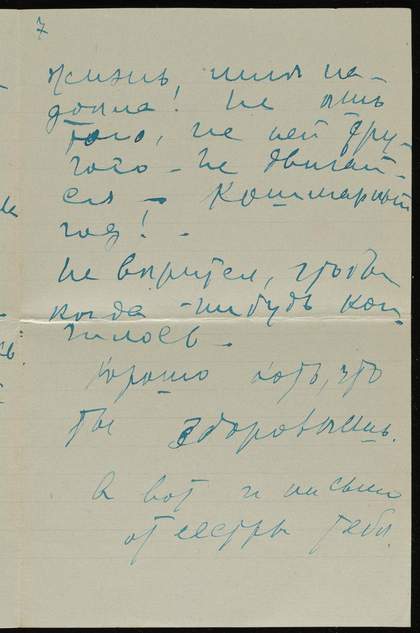 7
жизнь, или на-
доела! Не ешь
того, не пей дру-
гого – не двигай-
ся – кошмарный
год! –
Не верится, чтобы
когда-нибудь кон-
чилось –
Хорошо хоть, что
ты здоровишь.
А вот и письмо
от сестры тебе.